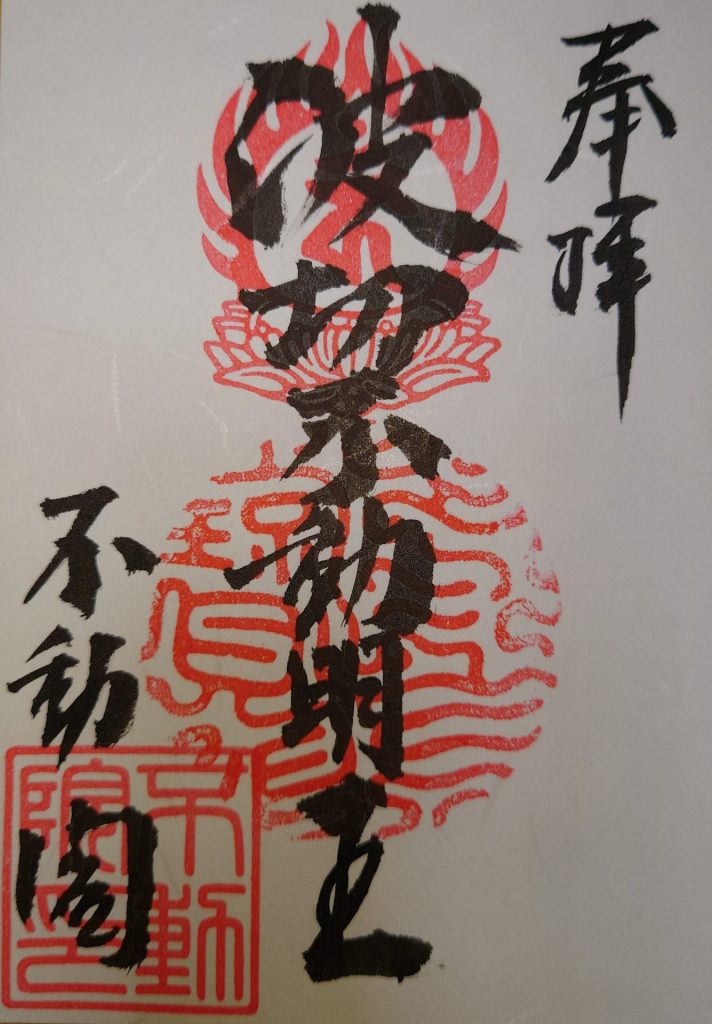 奉拝
波切不動明王
不動閣
不動院印